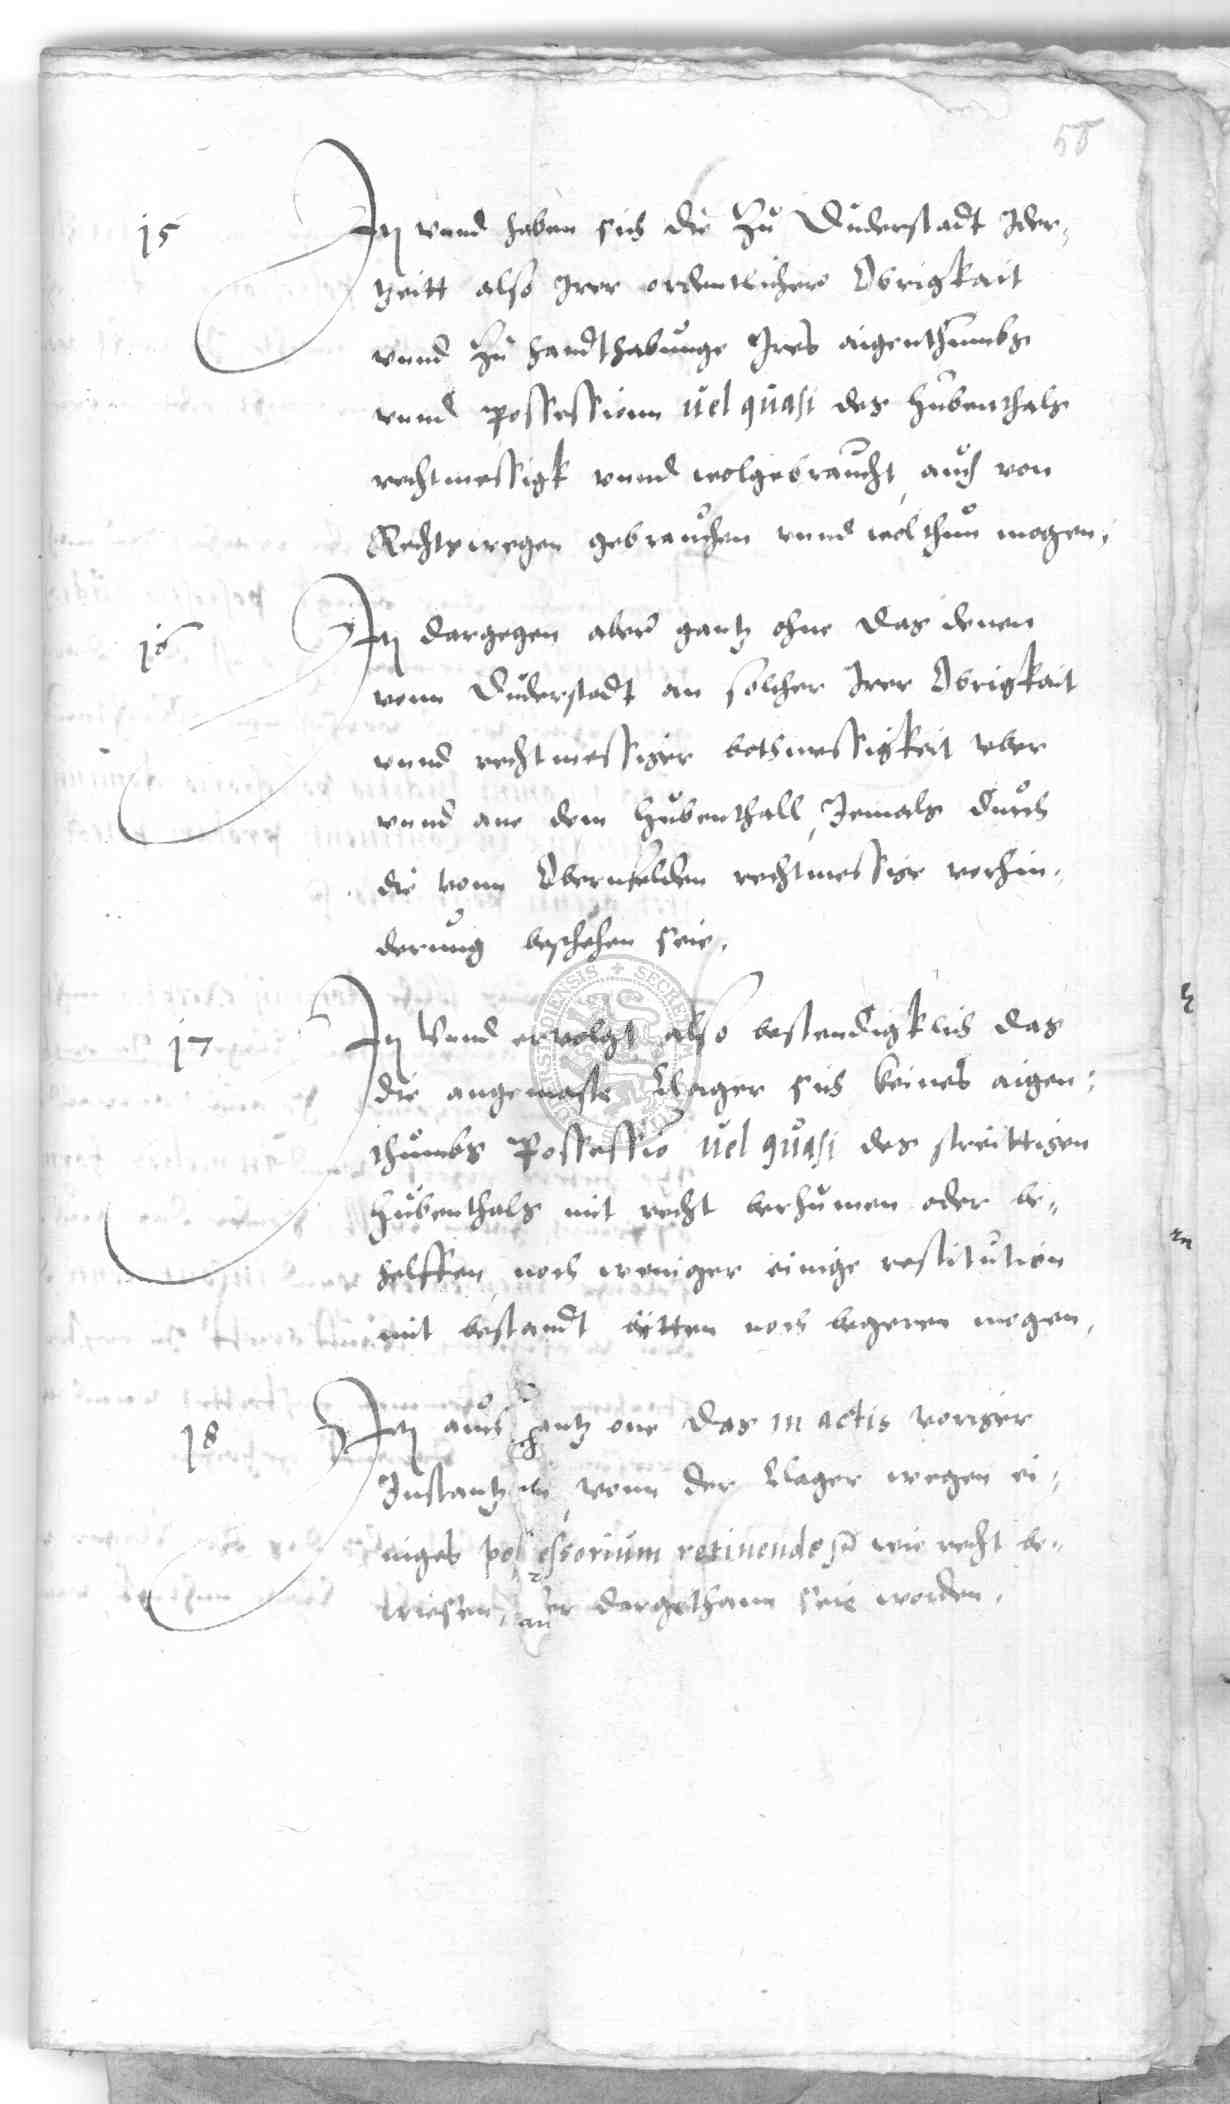 58
15 Jtem vnnd haben sich die zu Duderstadt Jder¬
tzeitt also Jrer ordentlichenn Obrigkait
vnnd zu handthabunge Jres aigenthumbs
vnnd Possessionn uel quasi des Hubenthals
rechtmessigk vnnd wolgebraucht, auch von
Rechtswegen gebrauchen vnnd wol thun mogen.
16 Jtem dargegen aber gantz ohne das denen
vonn Duderstadt an solcher Jrer Obrigkait
vnnd rechtmessiger botmessigkeit vber
vnnd ane dem Hubenthall, Jemals durch
die vonn Obernfelden rechtmessige verhin¬
derung beschehen seie.
17 Jtem Vnnd ervolgt also bestendigklich das
die angemaste Clager sich keines aigen¬
thumbs Possessio uel quasi des streittigen
Hubenthals mit recht berhumen oder be¬
helffen, noch weniger einige restitution
mit bestandt bitten noch begeren mogen.
18 Jtem auch gantz one das in actis voriger
Jnstantz vonn der Clager wegen ei¬
niges possessorium retinendo wie recht be¬
wiesen, dargethann seie worden.